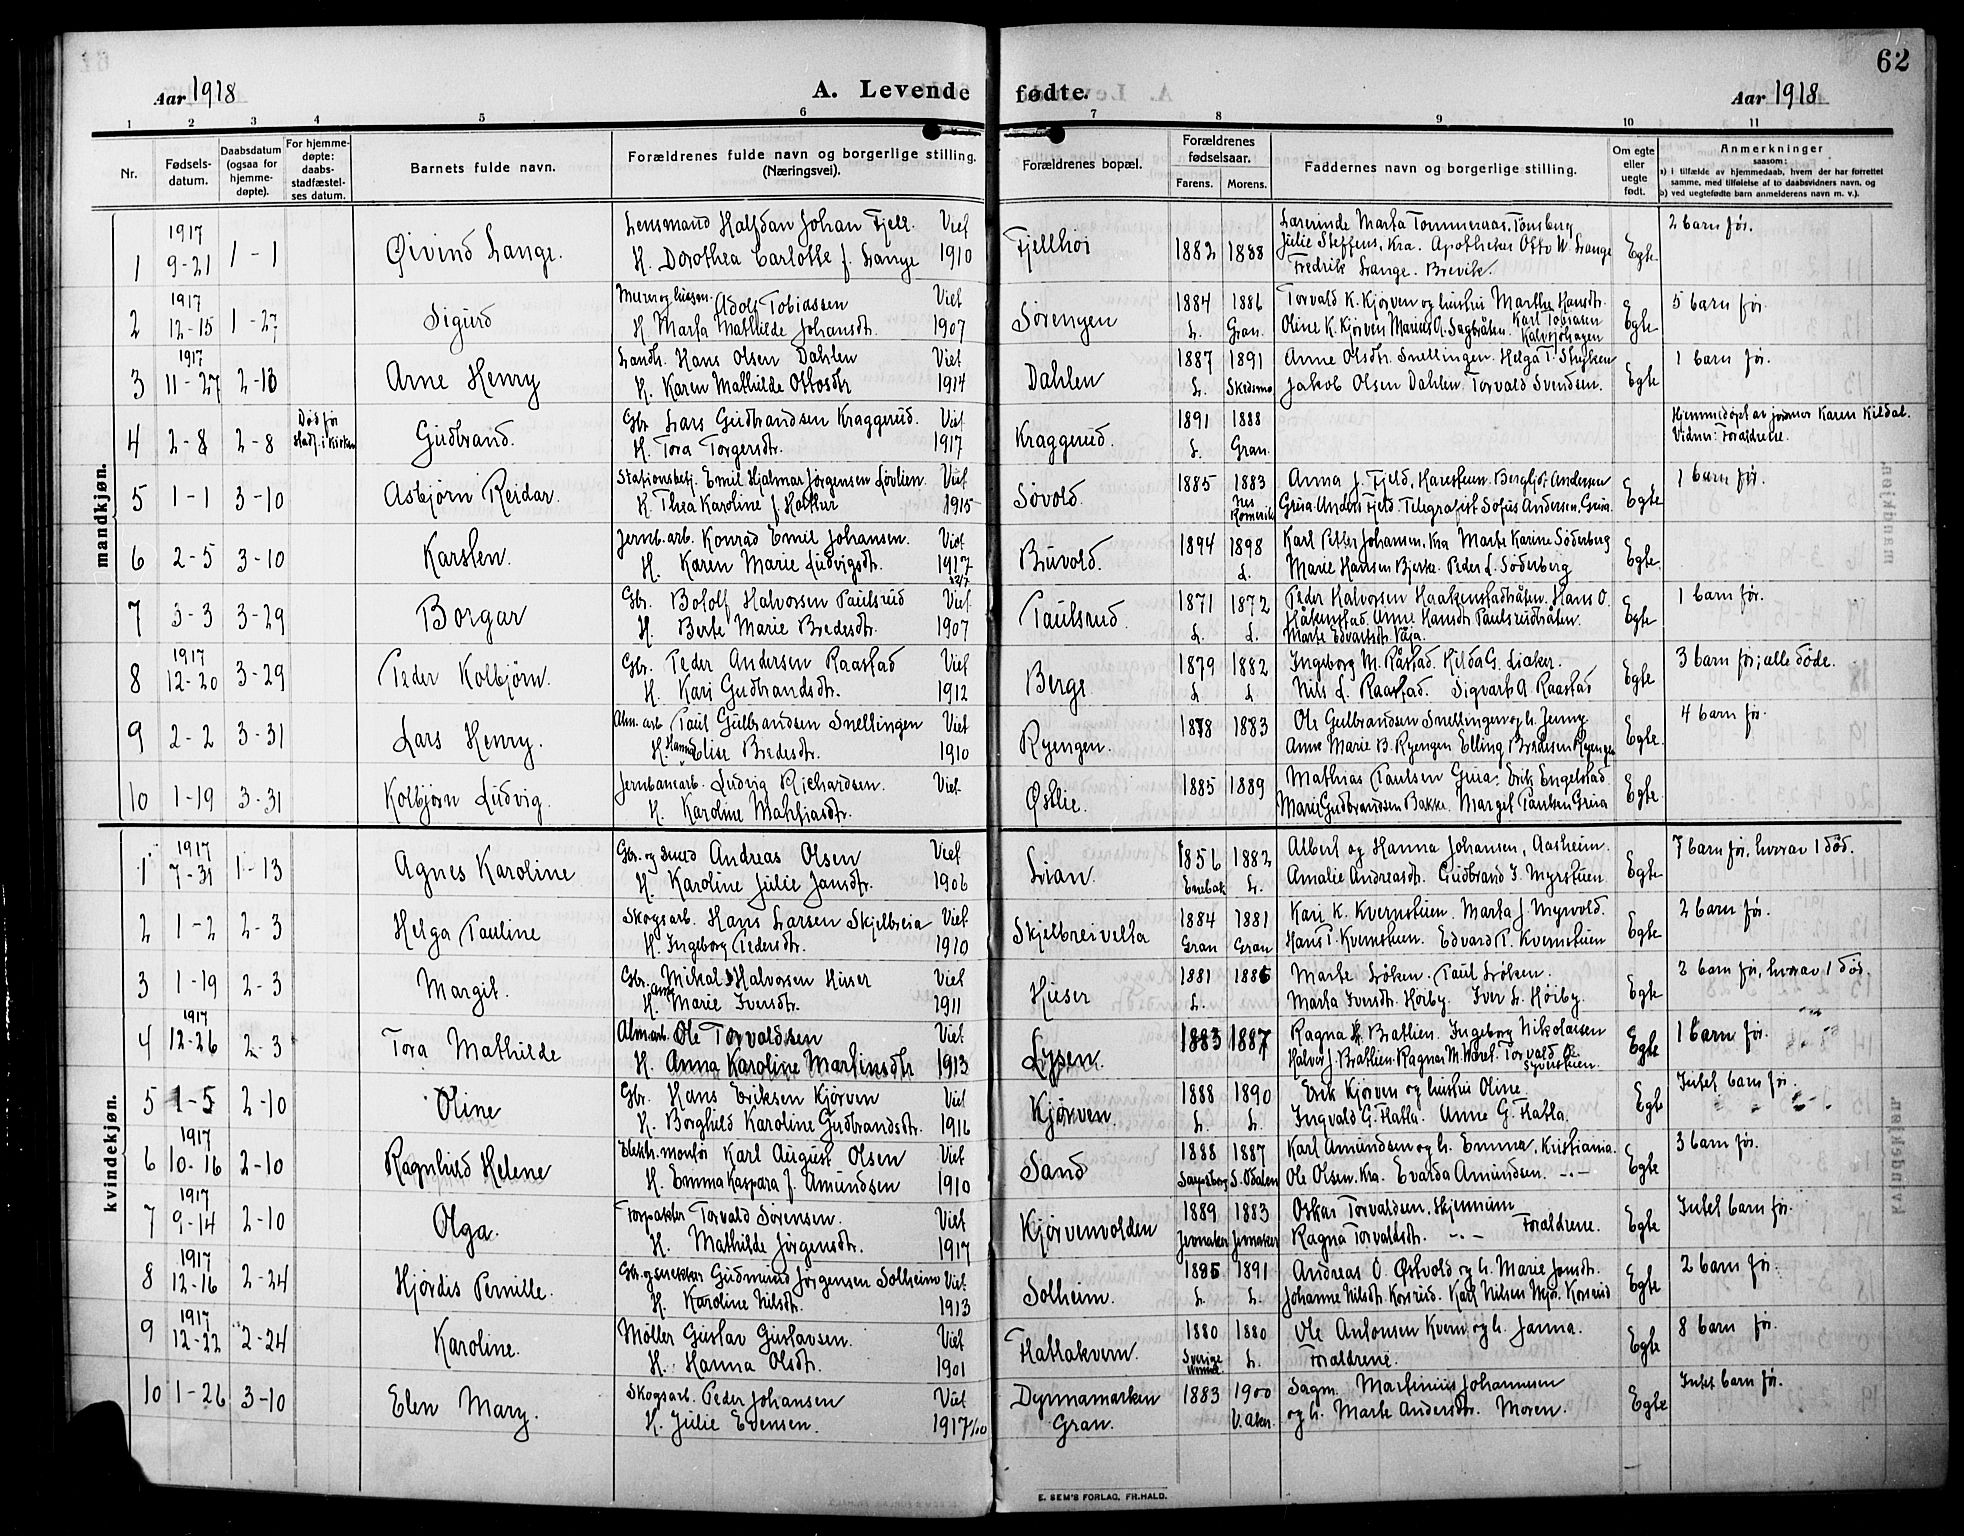 62
Aar 1918
A. Levende fødte.
Aar 1918
1 2 3 4 5 6 7 8 9 10 11
Nr.
Fødsels-
datum.
Daabsdatum
(ogsaa for
hjemme-
døpte).
For hjemme-
døpte:
daabs-
stadfæstel-
ses datum.
Barnets fulde navn.
Forældrenes fulde navn og borgerlige stilling.
(Næringsvei).
Forældrenes bopæl.
Forældrenes
fødselsaar.
Farens. Morens.
Faddernes navn og borgerlige stilling.
Om egte
eller
uegte
født.
Anmerkninger
saasom:
a) i tilfælde av hjemmedaab, hvem der har forrettet
samme, med tilføielse af to daabsvidners navn, og
b) ved uegtefødte barn anmelderens navn m. v.).
mandkjøn.
1917 Lensmand Halfdan Johan Fjell. Viet Lærerinde Marta Tommeraas, Tønsberg 2 barn før.
1 9-21 1-1 Øivind Lange. H. Dorothea Carlotte f. Lange 1910 Fjellhøi 1882 1888 Julie Steffens, Kra. Apotheker Otto W. Lange Egte
Fredrik Lange. Brevik.
1917 Adolf Tobiassen Viet 1884 1886 Torvald K. Kjørven og hustru Marthe Hansdtr. 5 barn før.
2 12-15 1-27 Sigurd H. Marta Mathilde Johansdtr. 1907 Sørengen L. Gran. Oline K. Kjørven Marius A. Sagbråten. Karl Tobiasen Egte
1917 Landh. Hans Olsen Dahlen Viet 1887 1891 Anne Olsdtr. Snellingen. Helga T. 1 barn før.
3 11-27 2-13 Arne Henry H. Karen Mathilde Ottosdtr 1914 Dahlen L. Skedsmo Jakob Olsen Dahlen. Torvald Svendsen. Egte
Død før Gbr. Lars Gudbrandsen Kraggerud. Viet 1891 1888 Hjemmedøpt av jordmor Karen Kildal.
4 2-8 2-8 stadf. i Kirken Gudbrand. H. Tora Torgersdtr. 1917 Kraggerud. L. Gran. Vidner: Forældrene.
Stationsbetj. Emil Hjalmar Jørgensen Løvlien. Viet 1885 1883 Anna J. Fjeld, Bergljot Andersen 1 barn før.
5 1-1 3-10 Asbjørn Reidar. H. Thea Karoline f. 1915 Søvold. Nes Romerik Grua. Anders Fjeld. Telegrafist Sofus Andersen, Grua. Egte
Jernb.arb. Konrad Emil Johansen. Viet 1894 1898 Karl Petter Johansen, Kra Marte Karine Söderberg
6 2-5 3-10 Karsten. H. Karen Marie Ludvigsdtr. 1917 Buvold. L. Marie Hansen Bjerke. Peder L. Söderberg Egte
Gbr. Botolf Halvorsen Paulsrud Viet 1871 1872 Peder Halvorsen Haakenstadbråten. Hans O. 1 barn før.
7 3-3 3-29 Borgar H. Berte Marie Bredesdtr. 1907 Paulsrud. L. L. Håkenstad. Anne Hansdtr Paulsrudbråten. Egte
Marte Edvartsdtr.
1917 Gbr. Peder Andersen Raastad Viet 1879 1882 Ingeborg M. Råstad. Hilda G. Liaker. 3 barn før; alle døde.
8 12-20 3-29 Peder Kolbjørn. H. Kari Gudbrandsdtr. 1912 Berge L L Nils L. Raastad. Sigvart A. Raastad Egte
Alm. arb Paul Gulbrandsen Snellingen Viet 1878 1883 Ole Gulbrandsen Snellingen og h. Jenny 4 barn før.
9 2-2 3-31 Lars Henry. H. Hanna Elise Bredesdtr. 1910 Ryengen. Anne Marie B. Ryengen Elling Bredesen Ryengen Egte.
Jernbanearb. Ludvig Richardsen. Viet. 1885 1889 Mathias Paulsen Grua. Erik Engelstad.
10 1-19 3-31 Kolbjørn Ludvig. H. Karoline Mathiasdtr. Østlie. Marie Gudbrandsen Bakke. Margit Paulsen Grua Egte
kvindekjøn.
1917 Gbr. og smed Andreas Olsen Viet 1856 1882 Albert og Hanna Johansen, Aasheim. 7 barn før, hvorav 1 død.
1 7-31 1-13 Agnes Karoline H. Karoline Julie Jansdtr. 1906 Lian. Enebak L. Amalie Andreasdtr. Gudbrand I. Myrstuen. Egte
Skogsarb. Hans Larsen Skjelbreia Viet 1884 1881 Kari K. Kvernstuen. Marta J. Myrvold. 2 barn før.
2 1-2 2-3 Helga Pauline H. Ingeborg Pedersdtr. 1910 Skjelbreivelta Gran Gran Hans P. Kvernstuen. Edvard P. Kvernstuen Egte
Gbr. Mikal Halvorsen Huser Viet 1881 1886 Marte Løken. Paul Løken. 2 barn før, hvorav 1 død.
3 1-19 2-3 Margit. H. Anne Marie Iversdtr. 1911 Huser L. Marta Iversdtr. Høiby. Iver L. Høiby. Egte
1917 Almarb. Ole Torvaldsen Viet 1883 1887 Ragna Bratlien. Ingeborg Nikolaisen 1 barn før.
4 12-26 2-3 Tora Mathilde H. Anna Karoline Martinsdtr 1913 Lysen. Halvor J. Bratlien. Ragnar M. Torvald Egte
Gbr. Hans Eriksen Kjørven Viet 1888 1890 Erik Kjørven og hustru Oline. Intet barn før.
5 1-5 2-10 Oline H. Borghild Karoline Gudbrandsdtr. 1916 Kjørven. L. L. Ingvald G. Hatla. Anne G. Hatla. Egte
1917 Elektr. montør Karl August Olsen Viet 1888 1887 Karl Amundsen og h. Emma, Kristiania. 3 barn før.
6 10-16 2-10 Ragnhild Helene H. Emma Kaspara f. Amundsen 1910 Sand Sarpsborg S. Odalen Ole Olsen. Kra. Evarda Amundsen. -.- Egte
1917 Forpakter Torvald Sørensen. Viet 1889 1883 Oskar Torvaldsen. Intet barn før.
7 9-14 2-10 Olga. H. Mathilde Jørgensdtr. 1917 Kjørvenvolden Jevnaker Jevnaker Ragna Torvaldsdtr. -.- Forældrene. Egte
1917 Gbr. og snekker Gudmund Jørgensen Solheim Viet 1885 1891 Andreas O. Østvold og h. Marie Jonsdtr. 2 barn før.
8 12-16 2-24 Hjørdis Pernille. H. Karoline Nilsdtr. 1913 Solheim. L. L. Johanne Nilsdtr. Korsrud. Karl Nilsen Korsrud Egte
1917 Møller Gustav Gustavsen. Viet 1880 1880 Ole Antonsen Kvern og h. Janna. 8 barn før.
9 12-22 2-24 Karoline. H. Hanna Olsdtr. 1901 Hattakvern. Sverige L. Forældrene. Egte
Skogsarb. Peder Johansen Viet Dynnamarken 1883 1900 Sagm. Martinius Johannesen Intet barn før.
10 1-26 3-10 Elen Mary. H. Julie Evensen. 1917 Gran. V. Aker. og h. Marte Andersdtr. Moren. Egte
E. SEM'S FORLAG, FR.HALD.